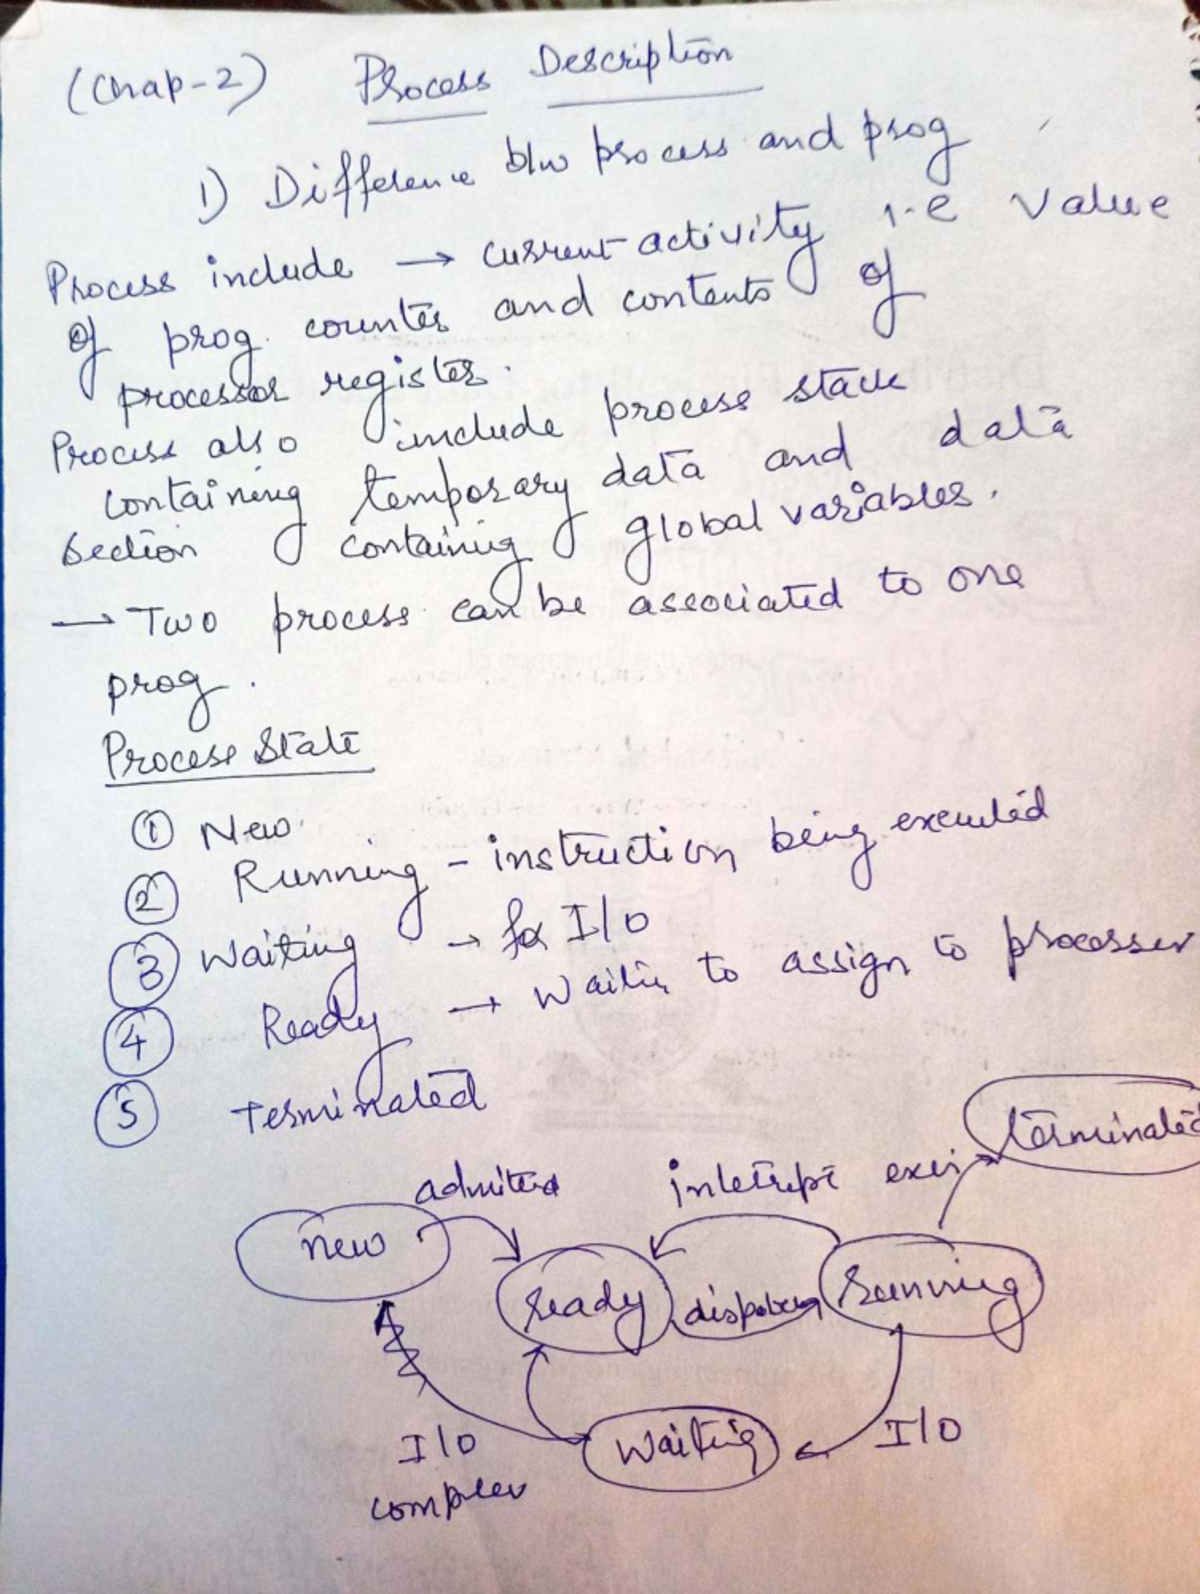 (Chap-2) Process Description
1) Difference b/w process and prog
Process include → current activity i.e value
of prog. counter and contents of
processor register.
Process also include process stack
containing temporary data and data
section containing global variables.
→ Two process can be associated to one
prog.
Process State
① New
② Running - instruction being executed
③ Waiting → for I/O
④ Ready → waiting to assign to processor
⑤ Terminated
terminated
admitted interrupt
new
ready running
I/O waiting I/O